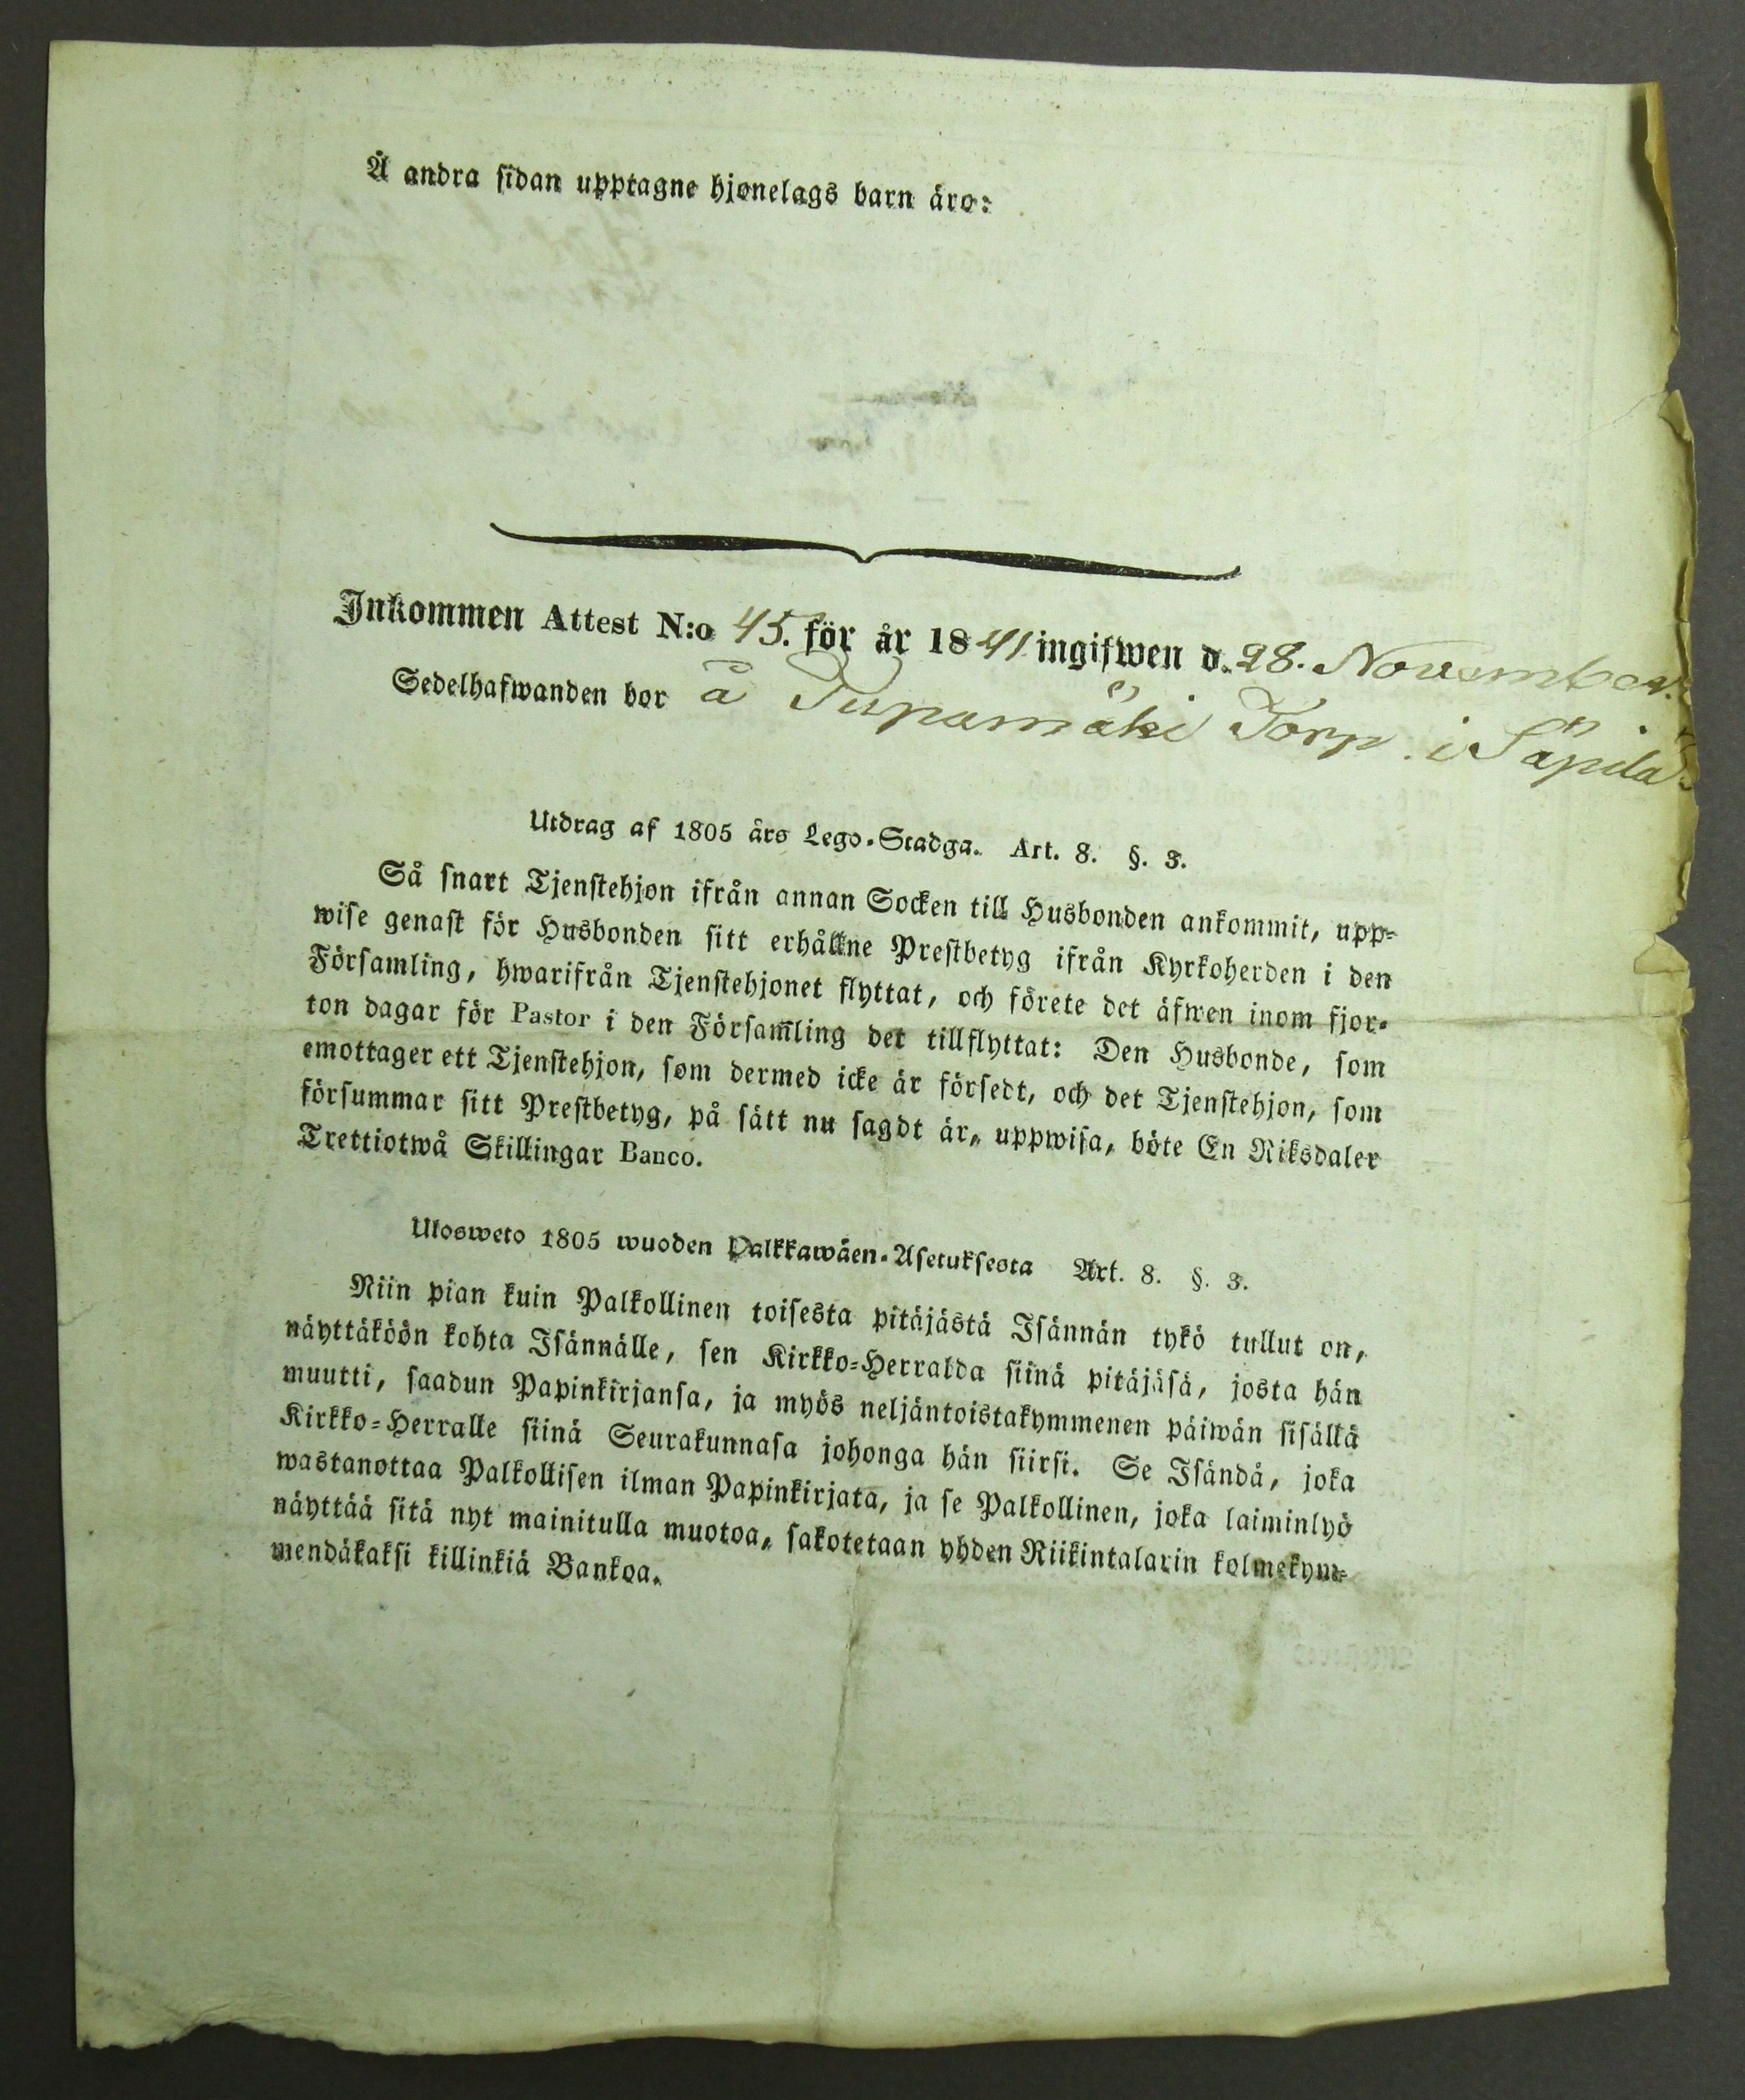 Å andra sidan upptagne hjonelags barn äro:
Inkommen Attest N:o 45. för år 1841 ingifwen d. 28. November.
Sedelhafwanden bor å Tupamäki Torp. i Säpilä
Utdrag af 1805 års Lego-Stadga. Art. 8. §. 3.
Så snart Tjenstehjon ifrån annan Socken till Husbonden ankommit, upp-
wise genast för Husbonden sitt erhållne Prestbetyg ifrån Kyrkoherden i den
Församling, hwarifrån Tjenstehjonet flyttat, och förete det äfwen inom fjor-
ton dagar för Pastor i den Församling det tillflyttat: Den Husbonde, som
emottager ett Tjenstehjon, som dermed icke är försedt, och det Tjenstehjon, som
försummar sitt Prestbetyg, på sätt nu sagdt är, uppwisa, böte En Riksdaler
Trettiotwå Skillingar Banco.
Ulosweto 1805 wuoden Palkkawäen-Asetuksesta Art. 8. §. 3.
Niin pian kuin Palkollinen toisesta pitäjästä Isännän tykö tullut on,
näyttäköön kohta Isännälle, sen Kirkko-Herralda siinä pitäjäsä, josta hän
muutti, saadun Papinkirjansa, ja myös neljäntoistakymmenen päiwän sisällä
Kirkko-Herralle siinä Seurakunnasa johonga hän siirsi. Se Isändä, joka
wastanottaa Palkollisen ilman Papinkirjata, ja se Palkollinen, joka laiminlyö
näyttää sitä nyt mainitulla muotoa, sakotetaan yhden Riikintalarin kolmekym-
mendäkaksi killinkiä Bankoa.